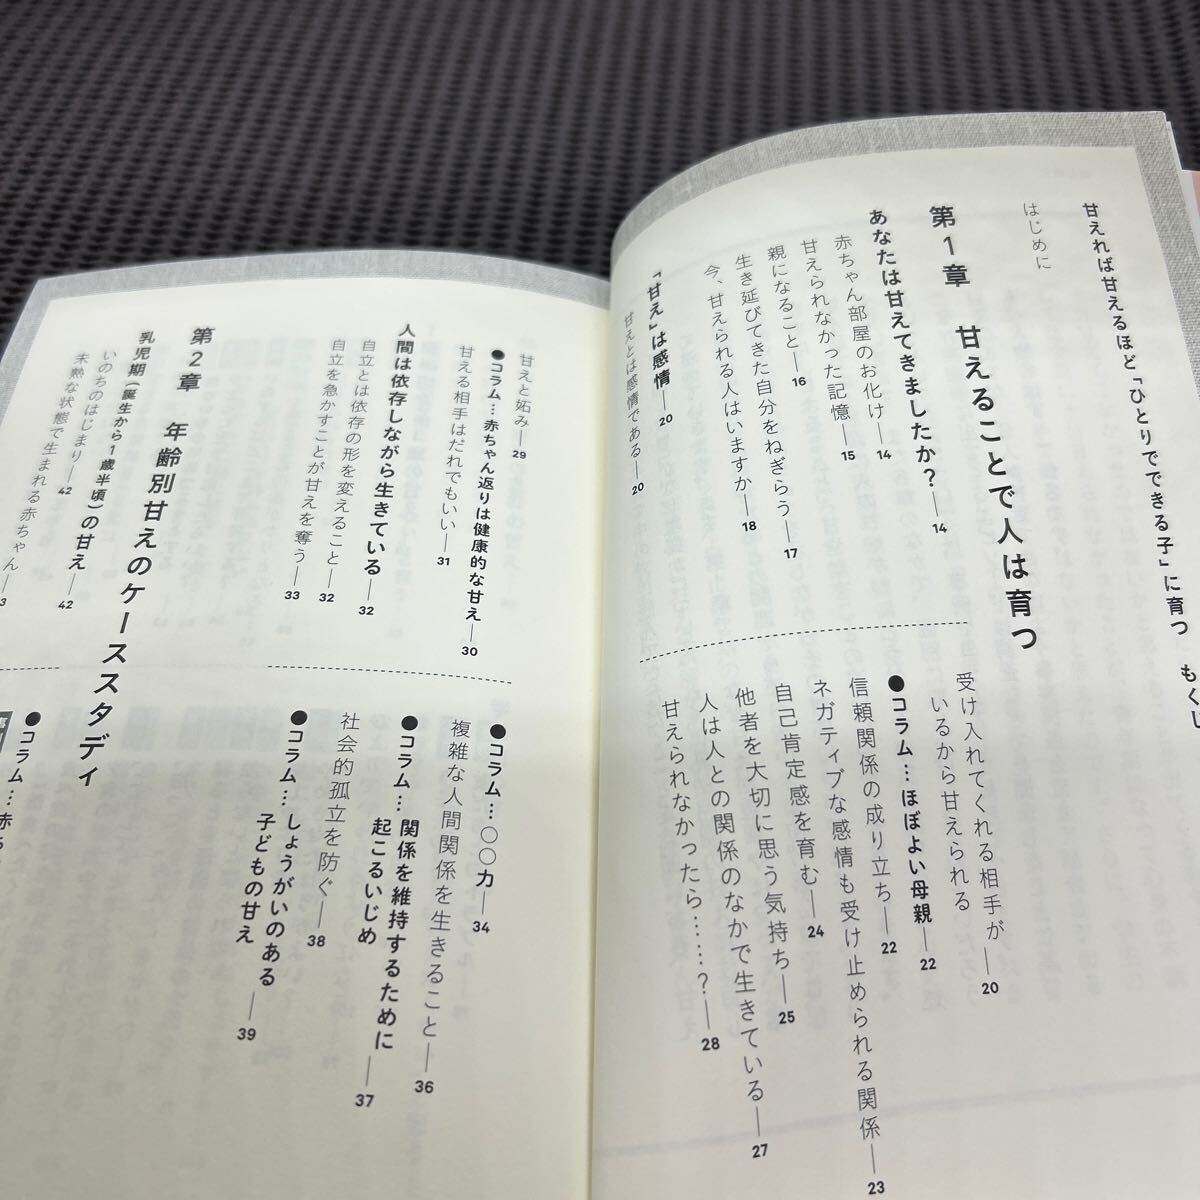 甘えれば甘えるほど「ひとりでできる子」に育つ もくじ
はじめに
第1章 甘えることで人は育つ
あなたは甘えてきましたか？—14
赤ちゃん部屋のお化け—14
甘えられなかった記憶—15
親になること—16
生き延びてきた自分をねぎらう—17
今、甘えられる人はいますか—18
「甘え」は感情—20
甘えとは感情である—20
受け入れてくれる相手が
いるから甘えられる—20
●コラム…ほぼよい母親—22
信頼関係の成り立ち—22
ネガティブな感情も受け止められる関係—23
自己肯定感を育む—24
他者を大切に思う気持ち—25
人は人との関係のなかで生きている—27
甘えられなかったら……？—28
甘えと妬み—29
●コラム…赤ちゃん返りは健康的な甘え—30
甘える相手はだれでもいい—31
人間は依存しながら生きている—32
自立とは依存の形を変えること—32
自立を急かすことが甘えを奪う—33
●コラム…〇〇力—34
複雑な人間関係を生きること—36
●コラム…関係を維持するために
起こるいじめ—37
社会的孤立を防ぐ—38
●コラム…しょうがいのある
子どもの甘え—39
第2章 年齢別甘えのケーススタディ
乳児期（誕生から1歳半頃）の甘え—42
いのちのはじまり—42
未熟な状態で生まれる赤ちゃん—
●コラム…赤ち